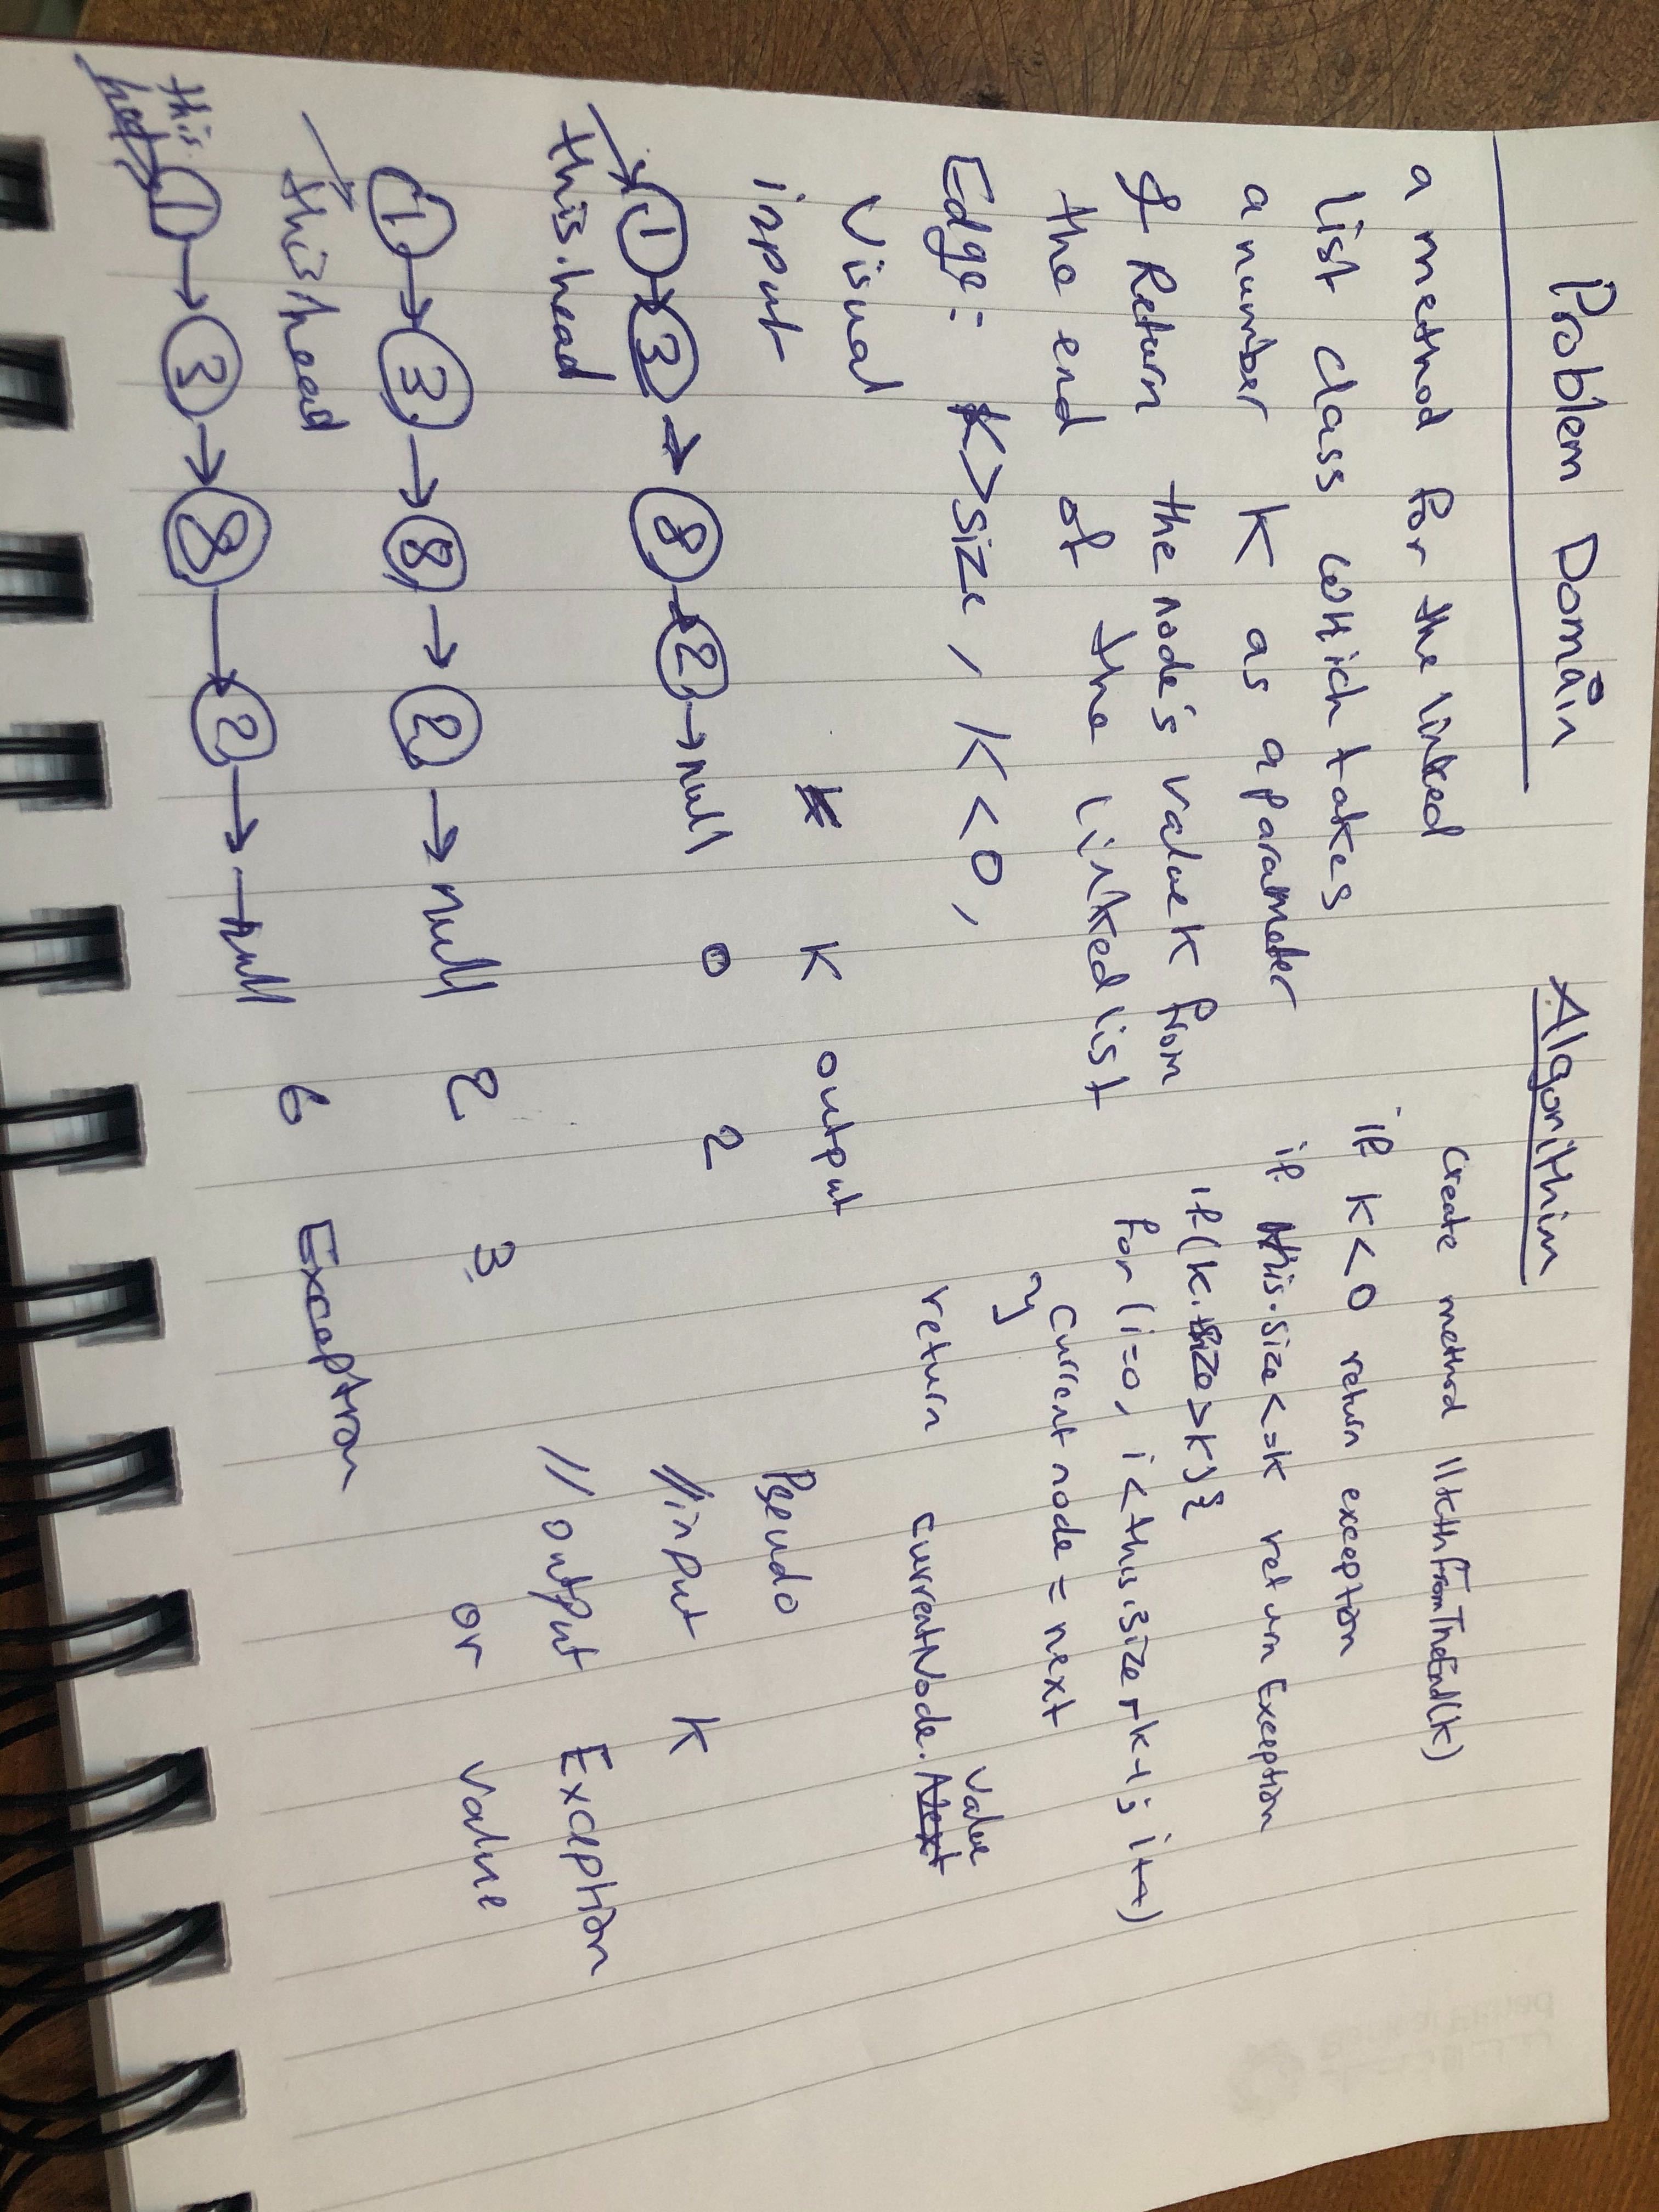 Problem Domain
a method for the linked
list class which takes
a number K as a parameter
& Return the node's value K from
the end of the linked list
Edge: K>size, K<0,
Visual
input K output
1 → 3 → 8 → 2 → null 0 2
this.head
1 → 3 → 8 → 2 → null 2 3
this head
1 → 3 → 8 → 2 → null 6 Exception
this
head
Algorithim
Create method llkthFromTheEnd(k)
if K<0 return exception
if this.size<=k return Exception
if(k.size>k){
for(i=0, i<this.size-k-1; i++)
current node = next
}
return currentNode.value
Pseudo
//input K
//output Exception
or value